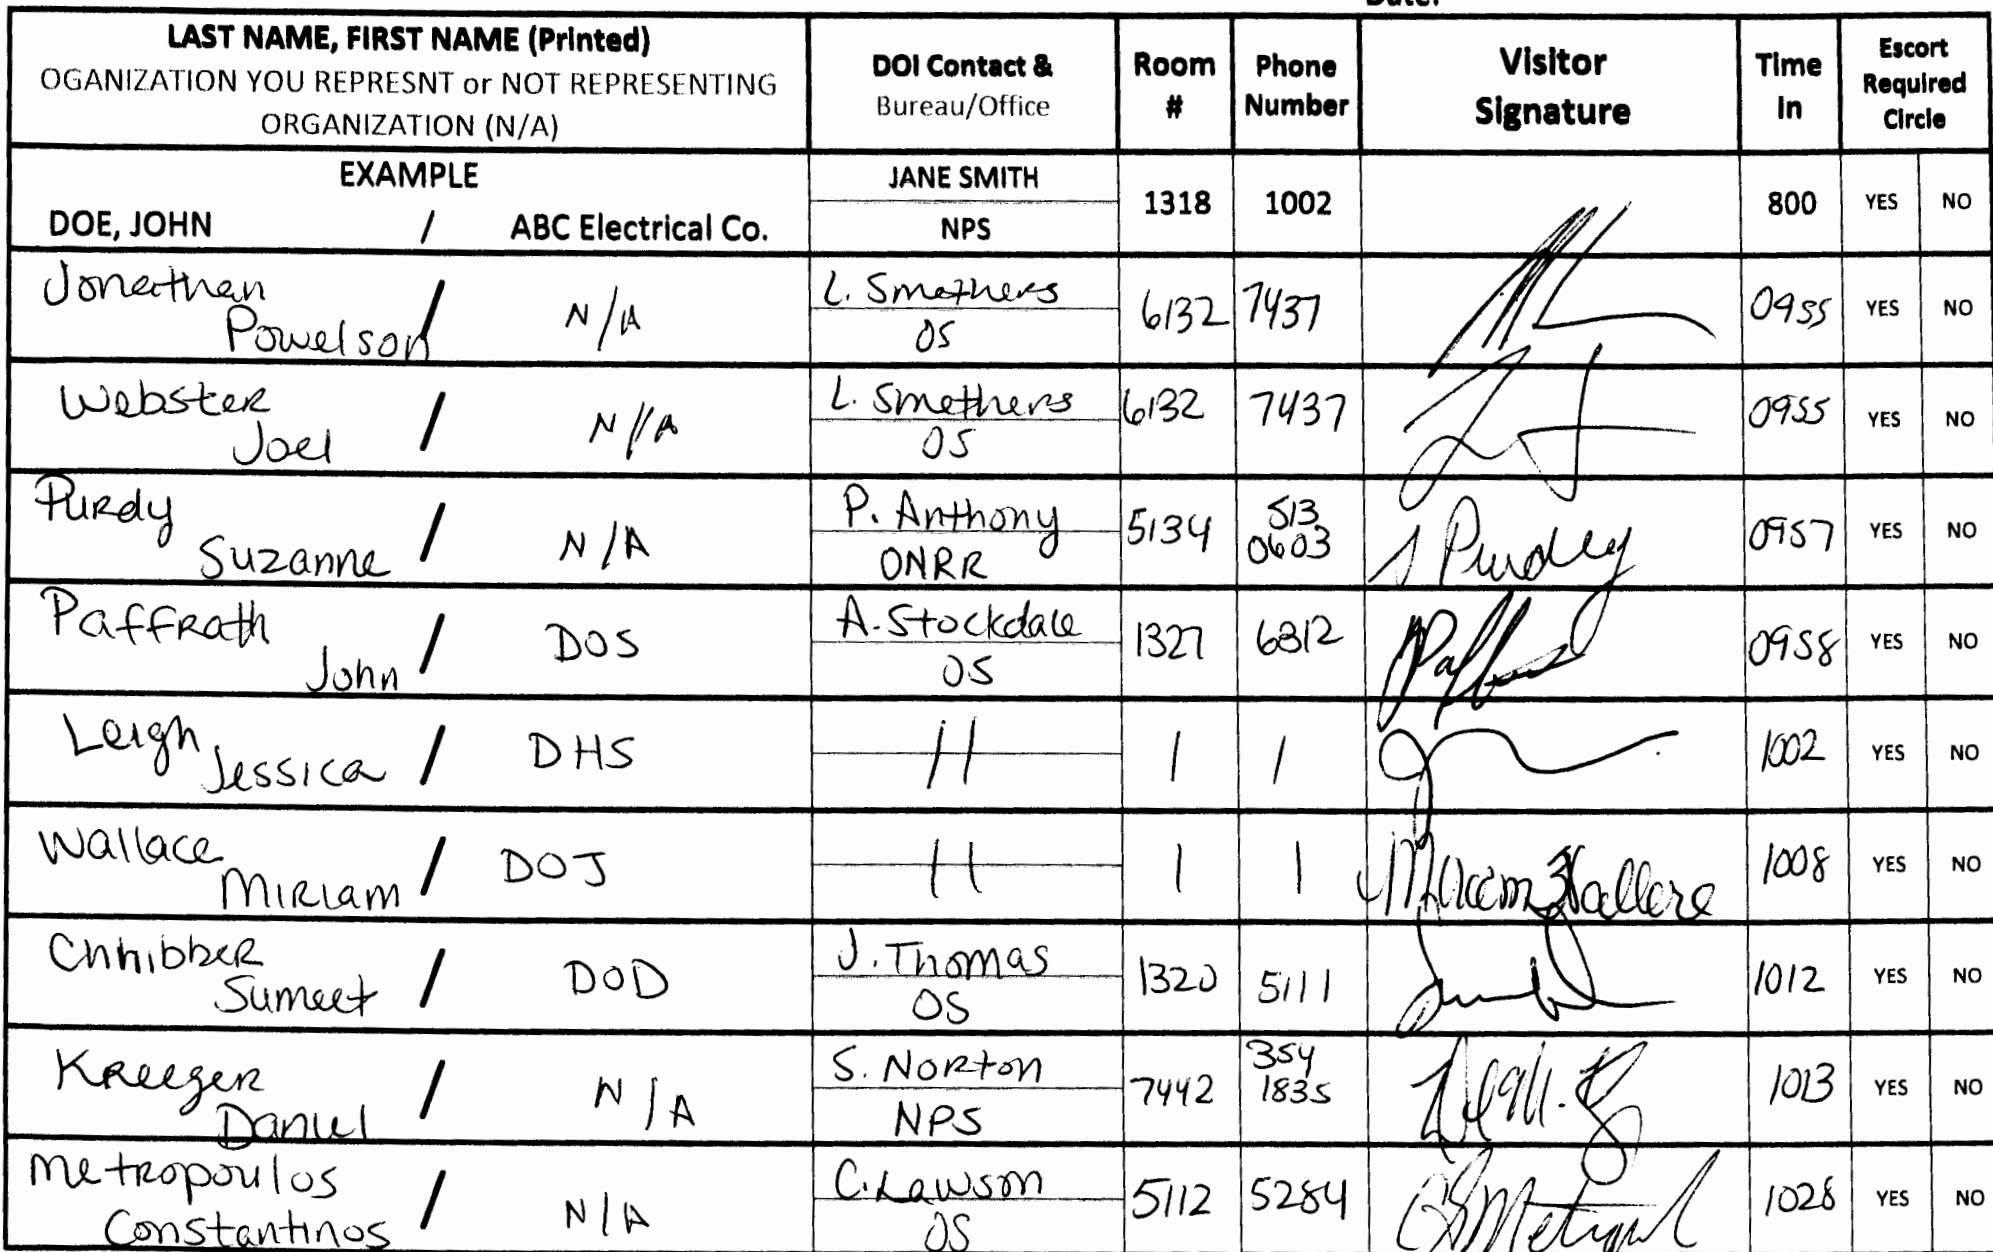 LAST NAME, FIRST NAME (Printed)
OGANIZATION YOU REPRESNT or NOT REPRESENTING
ORGANIZATION (N/A)
DOI Contact &
Bureau/Office
Room
#
Phone
Number
Visitor
Signature
Time
In
Escort
Required
Circle
EXAMPLE
DOE, JOHN / ABC Electrical Co.
JANE SMITH
NPS
1318 1002 800 YES NO
Jonathan
Powelson / N/A
L. Smethers
OS
6132 7437 0955 YES NO
Webster
Joel / N/A
L. Smethers
OS
6132 7437 0955 YES NO
Purdy
Suzanne / N/A
P. Anthony
ONRR
5134
513
0603
S Purdy
0957 YES NO
Paffrath
John / DOS
A. Stockdale
OS
1327 6312 0958 YES NO
Leigh
Jessica / DHS
11
1 1 1002 YES NO
Wallace
Miriam / DOJ
11
1 1
Miriam Wallace
1008 YES NO
Chhibber
Sumeet / DOD
J. Thomas
OS
1320 5111 1012 YES NO
Kreeger
Daniel / N/A
S. Norton
NPS
7442
354
1835
1013 YES NO
Metropoulos
Constantinos / N/A
C. Lawson
OS
5112 5284 1028 YES NO